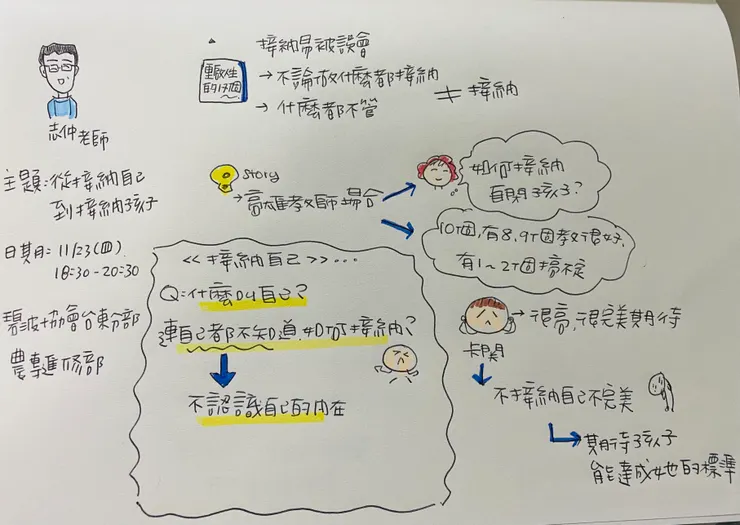 志仲老師
主題:從接納自己
到接納孩子
日期:11/23(四)
18:30-20:30
碧波協會台東分部
農專進修部
接納易被誤會
→不論做什麼都接納
→什麼都不管
≠接納
的17個
story
→高雄教師場合
如何接納
自閉孩子?
10個,有8.9個教很好,
有1~2個搞不定
<<接納自己>>...
Q:什麼叫自己?
連自己都不知道,如何接納?
不認識自己的內在
→很高,很完美期待
卡關
不接納自己不完美
期待孩子
能達成她的標準